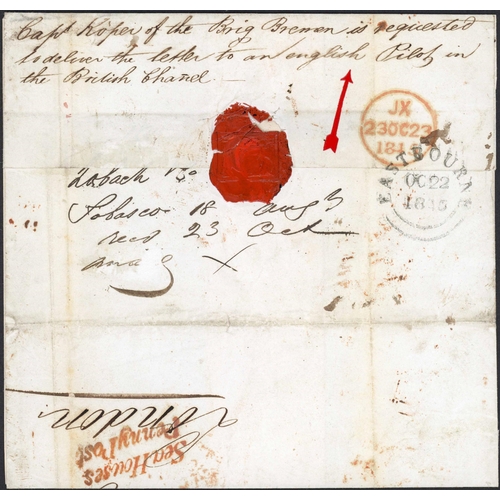 Capt Koper of the Brig Bremen is requested
to deliver the letter to an english Pilot in
the British Chanel
JX
23OC23
184
EASTBOURNE
OC22
1845
Tobasco 18 Augt
recd 23 Oct
London
Sea Houses
Penny Post